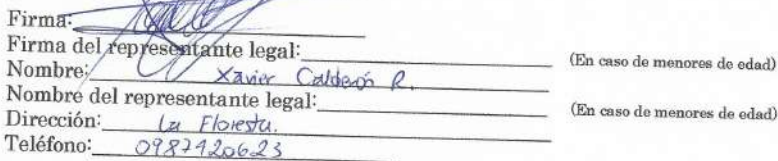 Firma:
Firma del representante legal: (En caso de menores de edad)
Nombre: Xavier Calderón R.
Nombre del representante legal: (En caso de menores de edad)
Dirección: La Floresta.
Teléfono: 0987420623